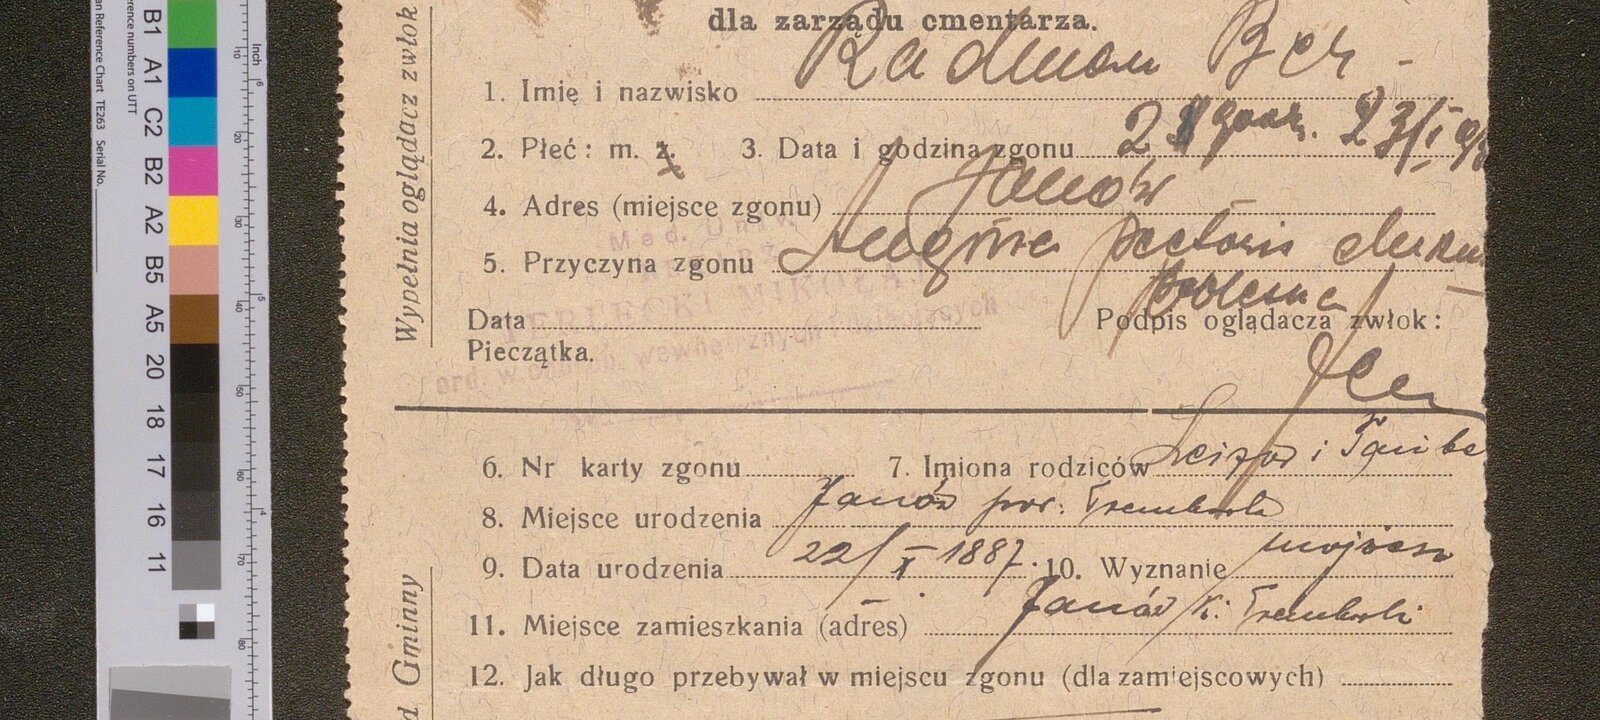 dla zarządu cmentarza.
1. Imię i nazwisko Radman Ber -
2. Płeć: m. ż. 3. Data i godzina zgonu 21 godz. 23/I
4. Adres (miejsce zgonu) Janów
5. Przyczyna zgonu Angina pectoris
Data Podpis oglądacza zwłok:
Pieczątka.
Med. Univ.
MIKOŁAJ
ord. w chorob. wewnętrznych i dziecięcych
6. Nr karty zgonu 7. Imiona rodziców Leizor i Tauba
8. Miejsce urodzenia Janów pow. Trembowla
9. Data urodzenia 22/X 1887. 10. Wyznanie mojżesz
11. Miejsce zamieszkania (adres) Janów k. Trembowli
12. Jak długo przebywał w miejscu zgonu (dla zamiejscowych)
Wypełnia oglądacz zwłok
Gminny
Inch
B1
A1
C2
B2
A2
B5
A5
20
18
17
16
11
an Reference Chart TE263 Serial No.
erence numbers on UTT